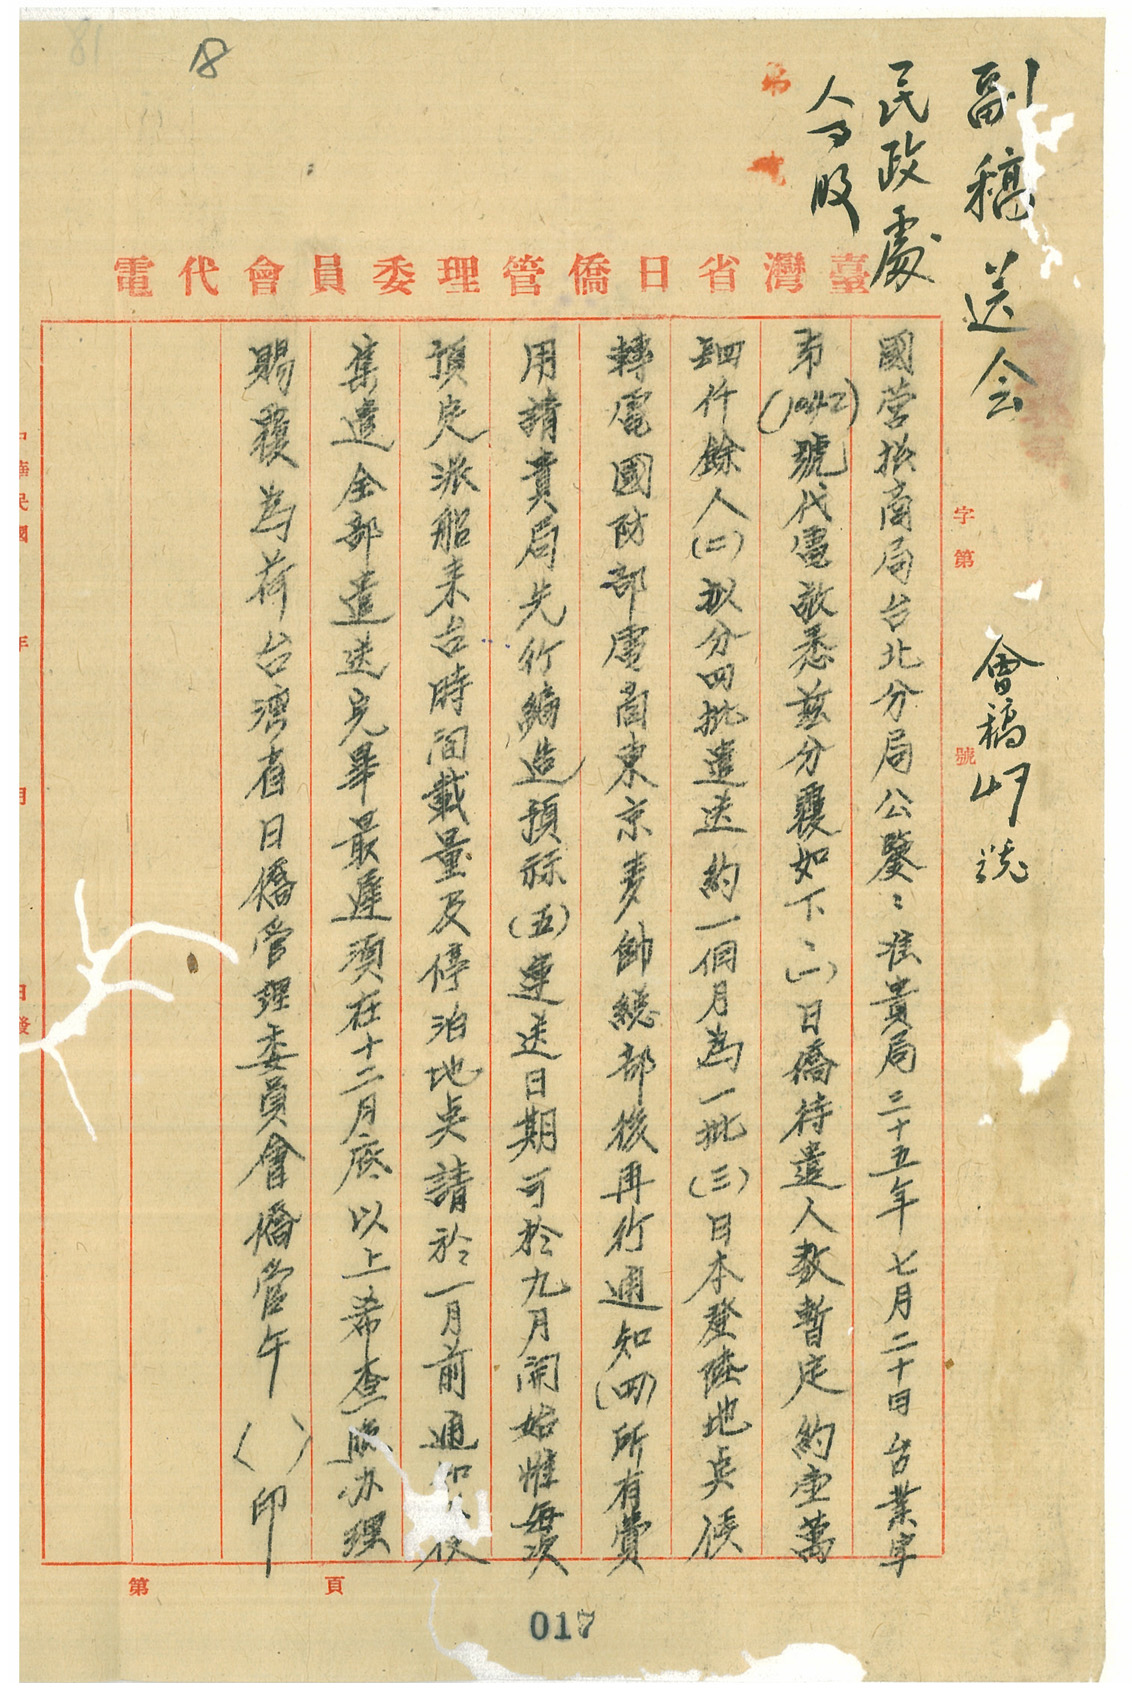 副稿送会
會稿 號
民政處
人事股
臺灣省日僑管理委員會代電
字第 號
國營招商局台北分局公鑒：准貴局三十五年七月二十日台業字
第(1042)號代電敬悉茲分覆如下：(一)日僑待遣人數暫定約壹萬
四仟餘人(二)擬分四批遣送約一個月為一批(三)日本登陸地点候
轉電國防部電商東京麥帥總部後再行通知(四)所有費
用請貴局先行編造預算(五)運送日期可於九月開始惟每次
預定派船來台時間載量及停泊地点請於一月前通知 便
集遣全部遣送完畢最遲須在十二月底以上希查照办理
賜覆為荷台灣省日僑管理委員會僑管午( )印
中華民國 年 月 日發
第 頁
017
18